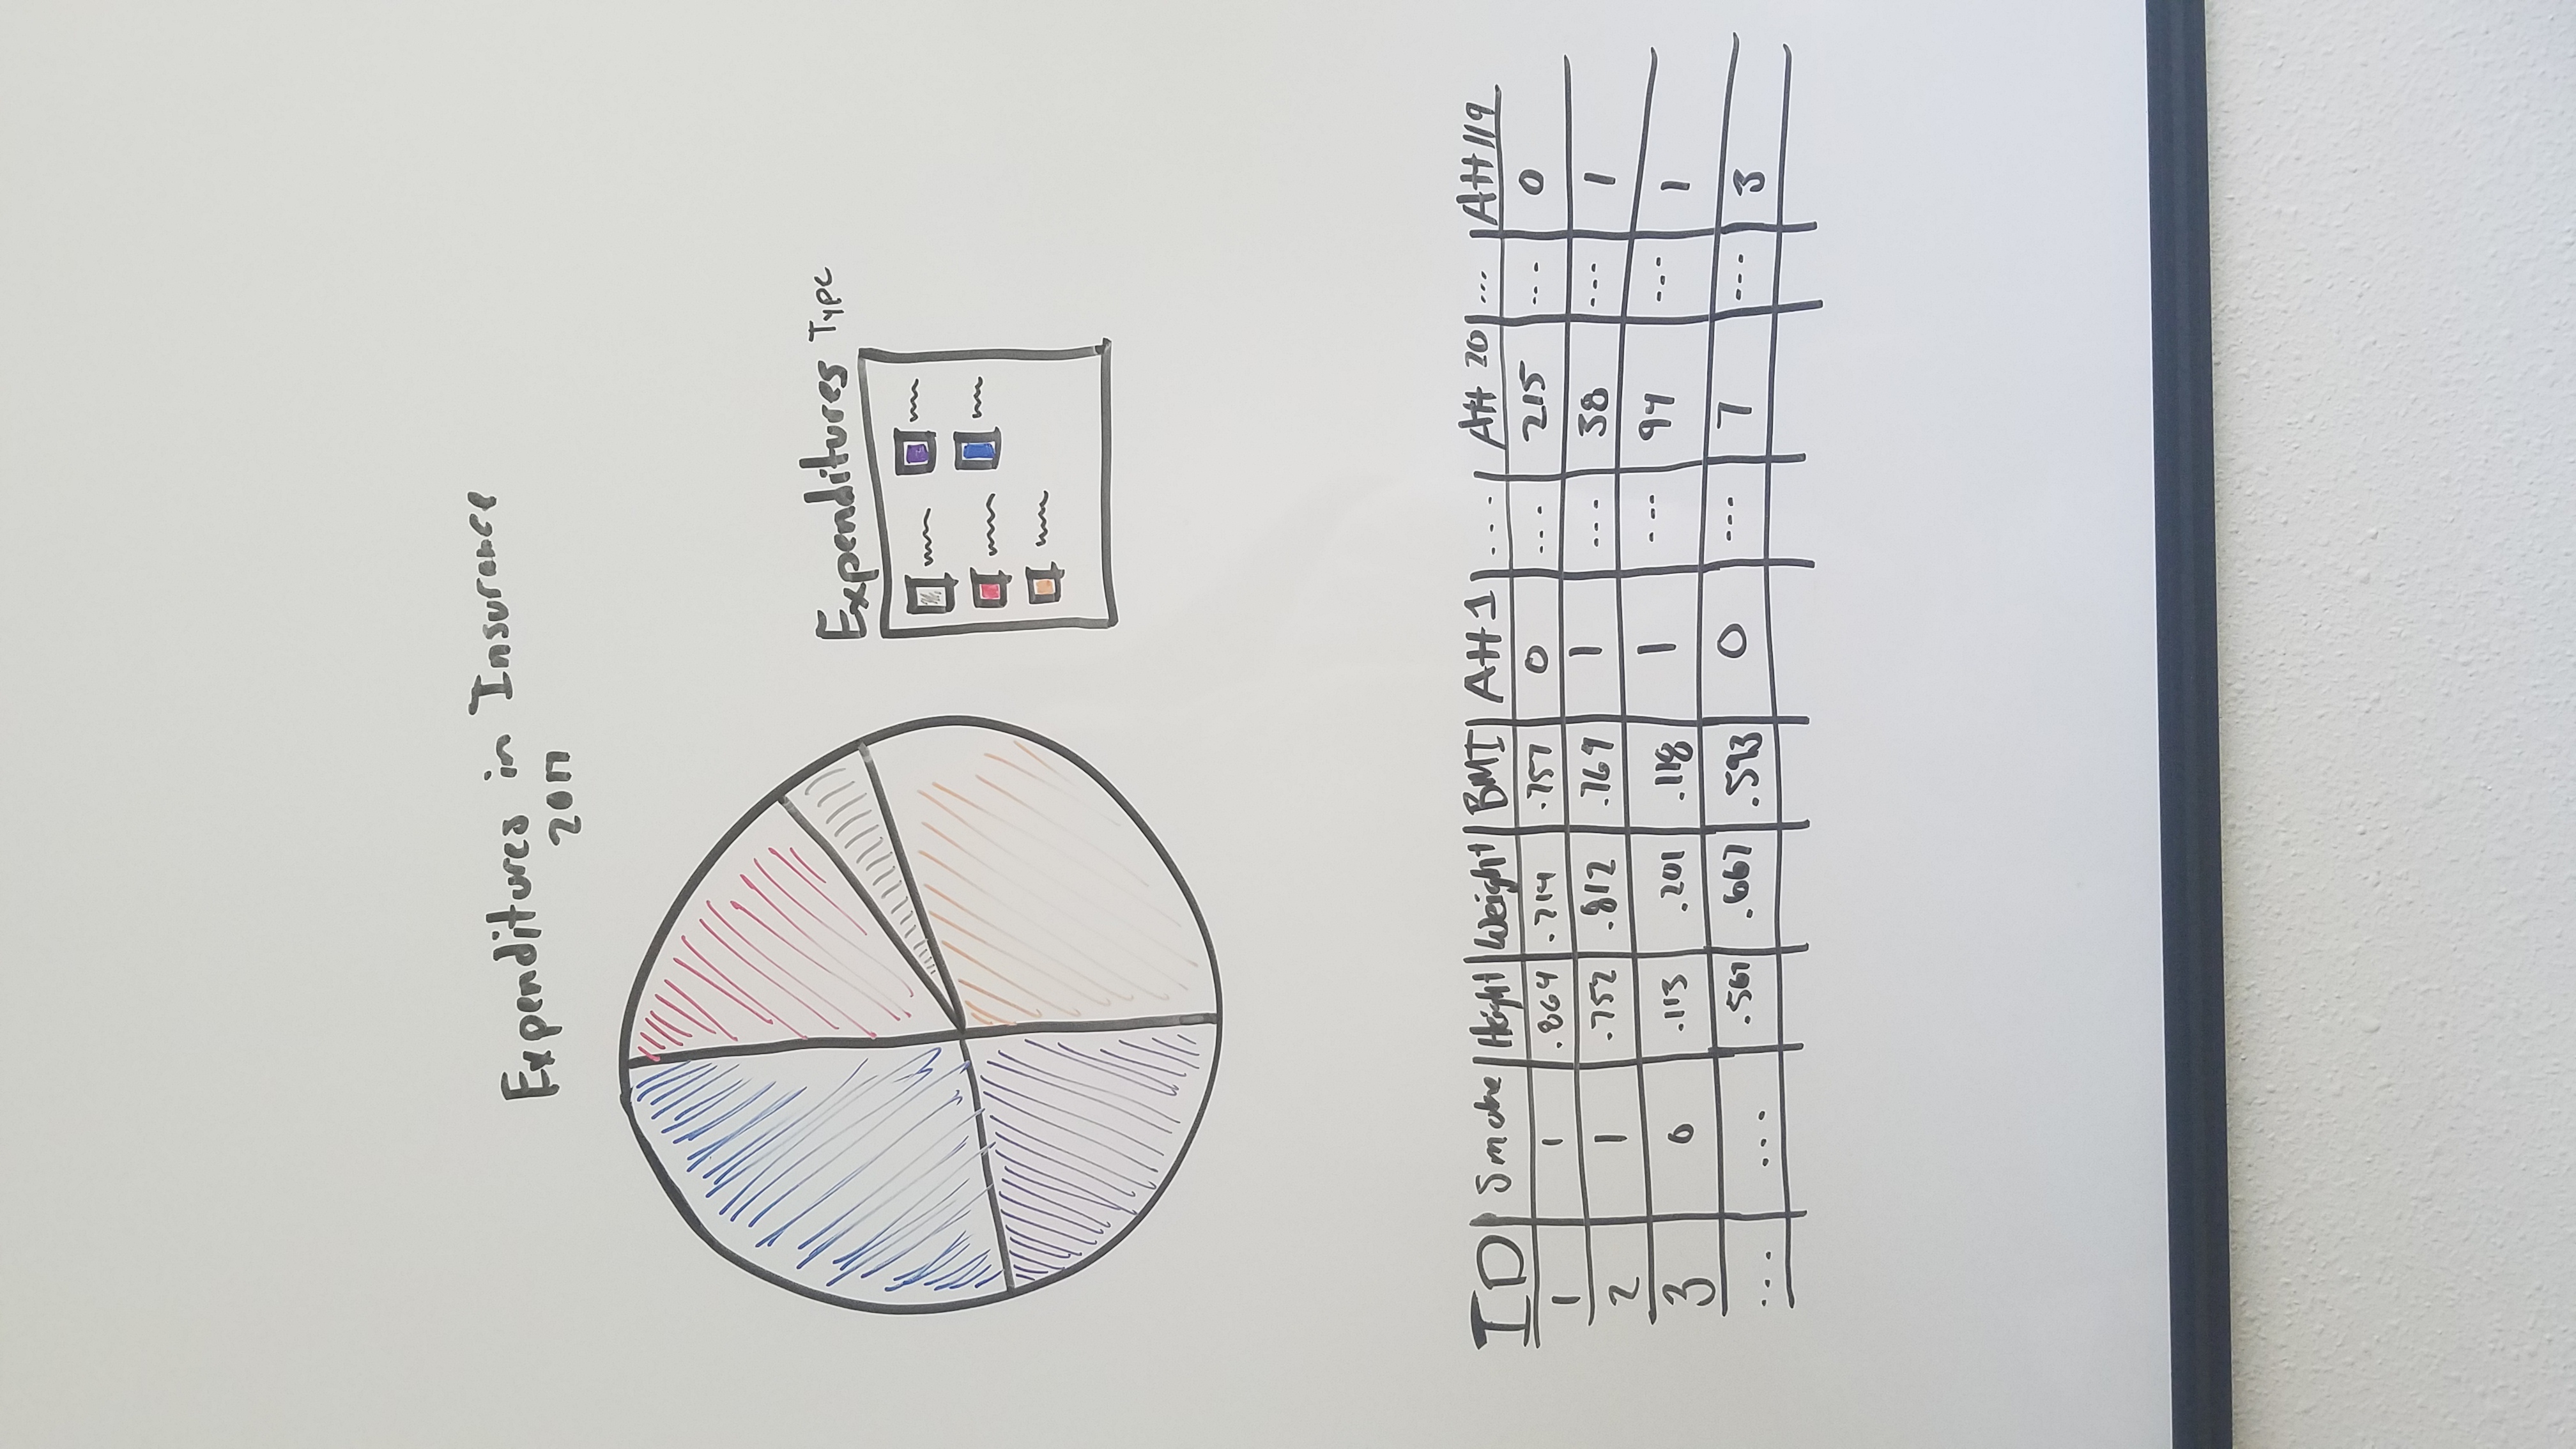 Expenditures in Insurance
2017
Expenditures Type
ID Smoke Height Weight BMI Att 1 .... Att 20 ... Att 119
1 1 .864 .714 .757 0 ... 215 ... 0
2 1 .752 .812 .769 1 ... 38 ... 1
3 0 .113 .201 .118 1 ... 94 ... 1
... ... .567 .667 .593 0 ... 7 ... 3